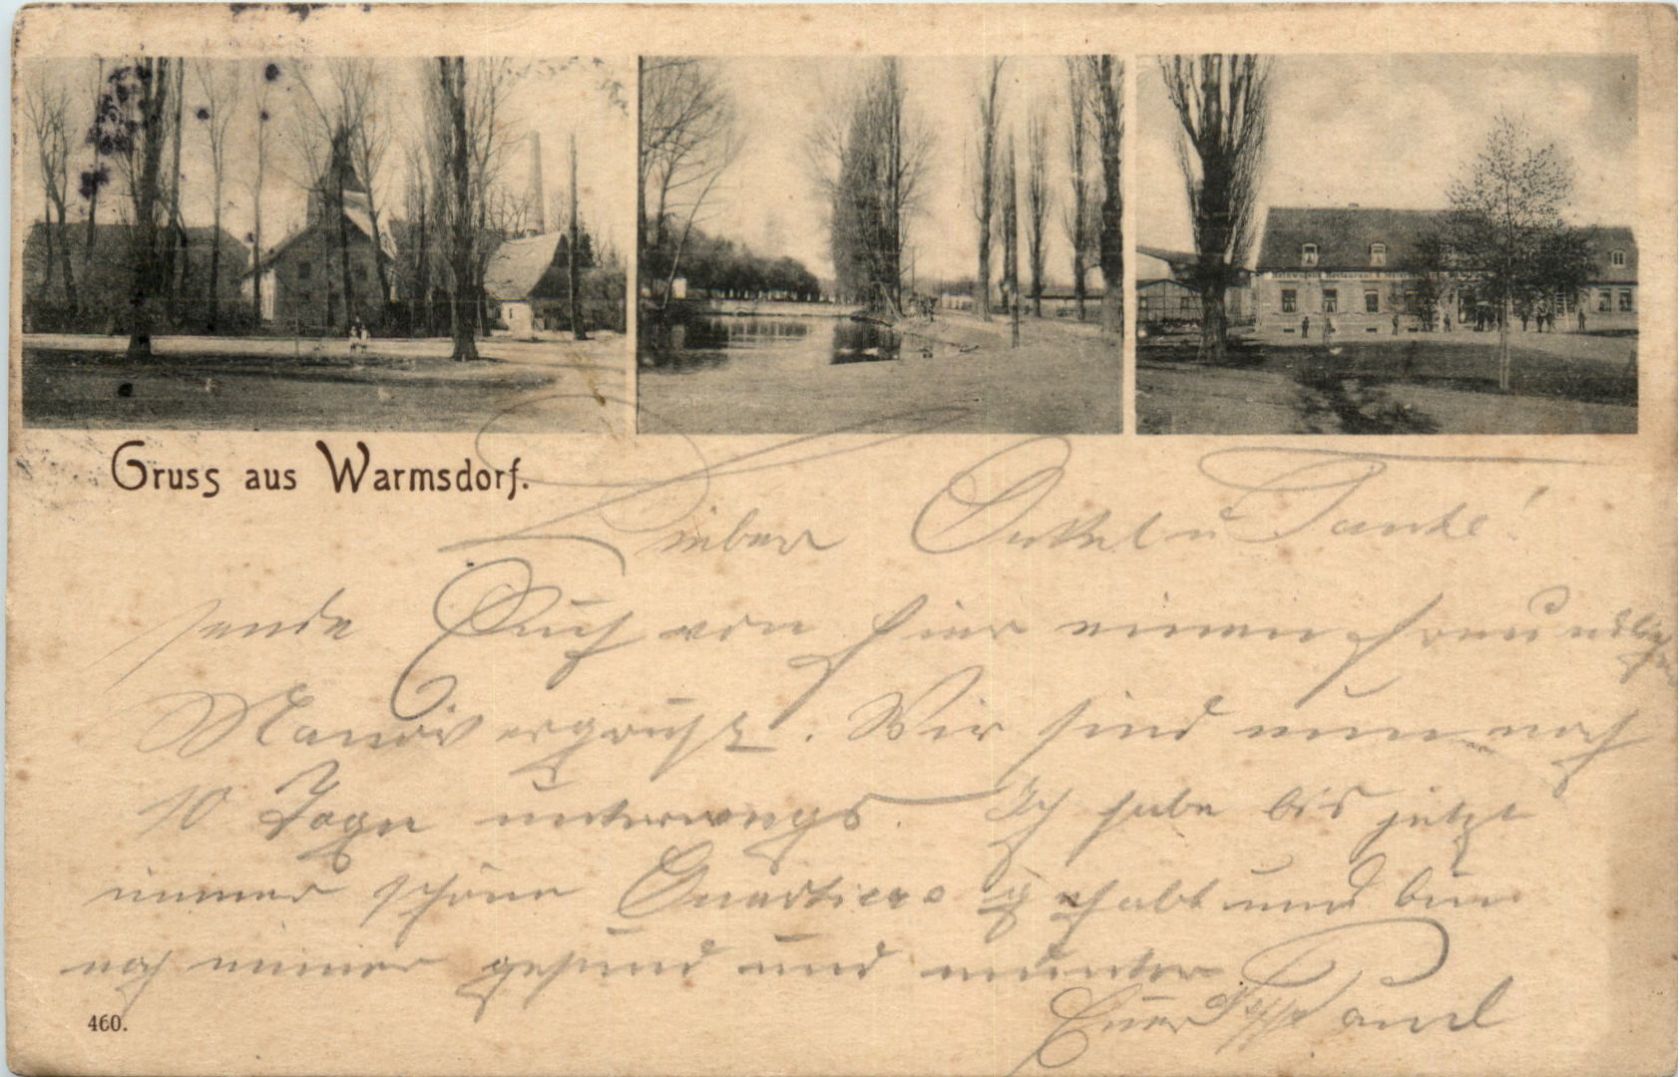 Gruss aus Warmsdorf.
Lieber Onkel u Tante!
sende Euch von hier einen freundlich
Manövergruß. Wir sind nun noch
10 Tage unterwegs. Ich habe bis jetzt
immer schöne Quartiere gehabt und bin
noch immer gesund und munter
Euer Neffe Paul
460.